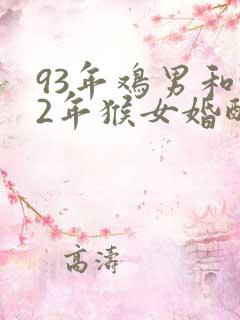 93年鸡男和
2年猴女婚配
高濤